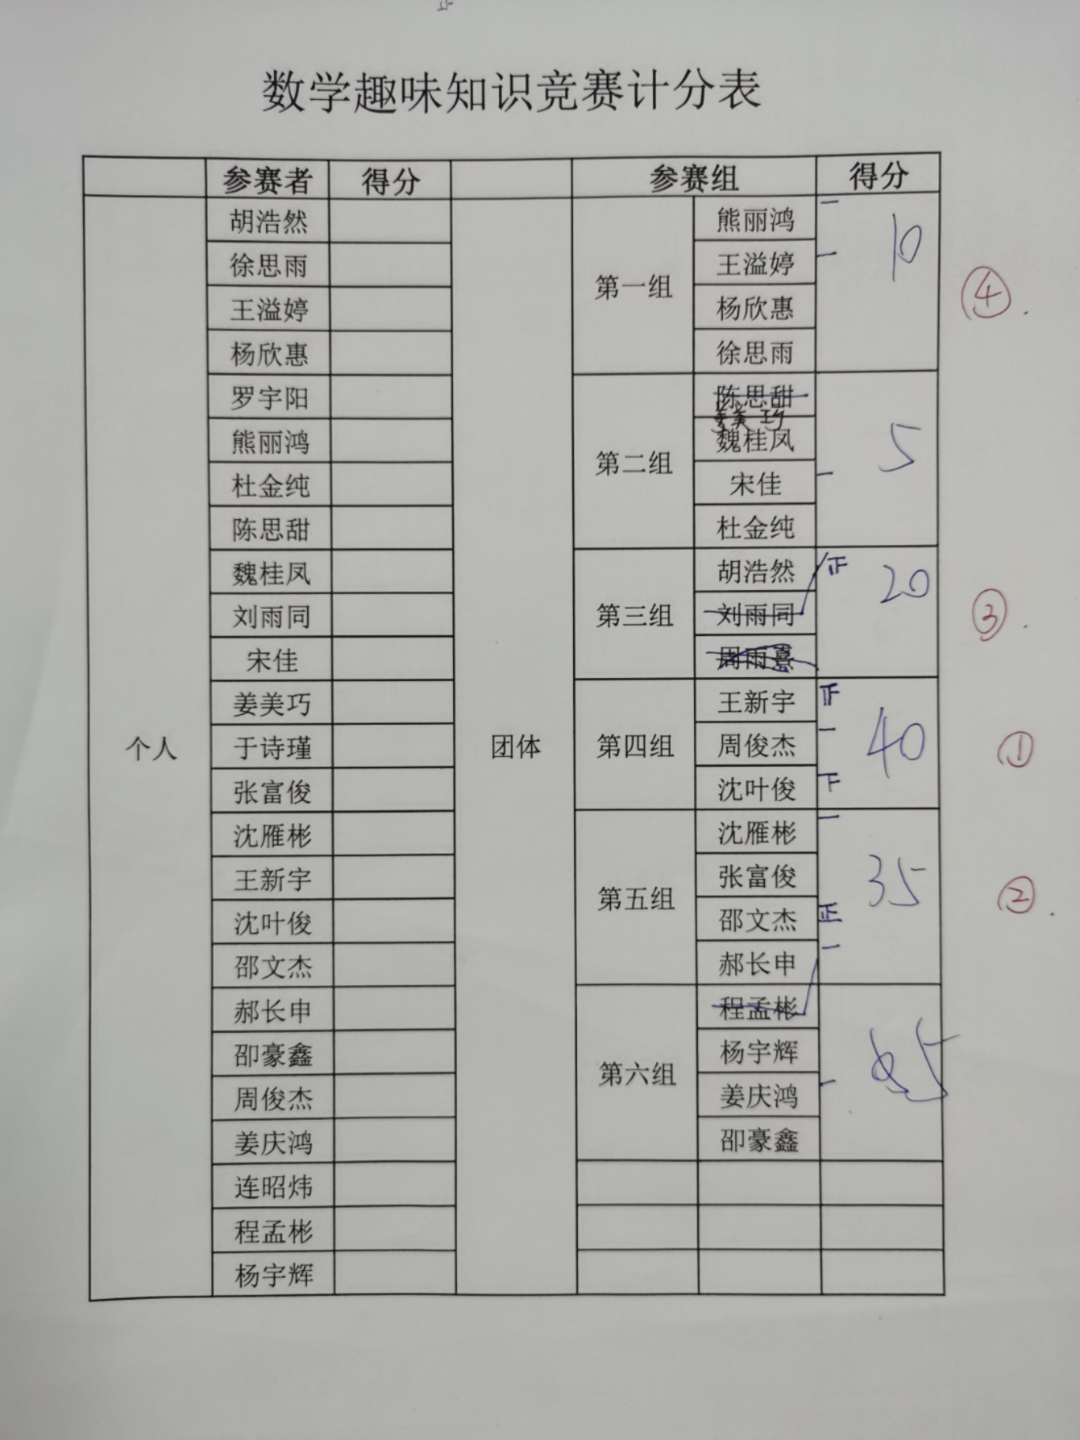 正
数学趣味知识竞赛计分表
参赛者 得分 参赛组 得分
个人
胡浩然
徐思雨
王溢婷
杨欣惠
罗宇阳
熊丽鸿
杜金纯
陈思甜
魏桂凤
刘雨同
宋佳
姜美巧
于诗瑾
张富俊
沈雁彬
王新宇
沈叶俊
邵文杰
郝长申
邵豪鑫
周俊杰
姜庆鸿
连昭炜
程孟彬
杨宇辉
团体
第一组
熊丽鸿 一
王溢婷 一
杨欣惠
徐思雨
10
④
第二组
陈思甜
姜美巧
魏桂凤
宋佳 一
杜金纯
5
第三组
胡浩然 正
刘雨同
周雨熹
20
③
第四组
王新宇 正
周俊杰 一
沈叶俊 下
40
①
第五组
沈雁彬 一
张富俊
邵文杰 正
郝长申 一
35
②
第六组
程孟彬
杨宇辉
姜庆鸿 一
邵豪鑫
5